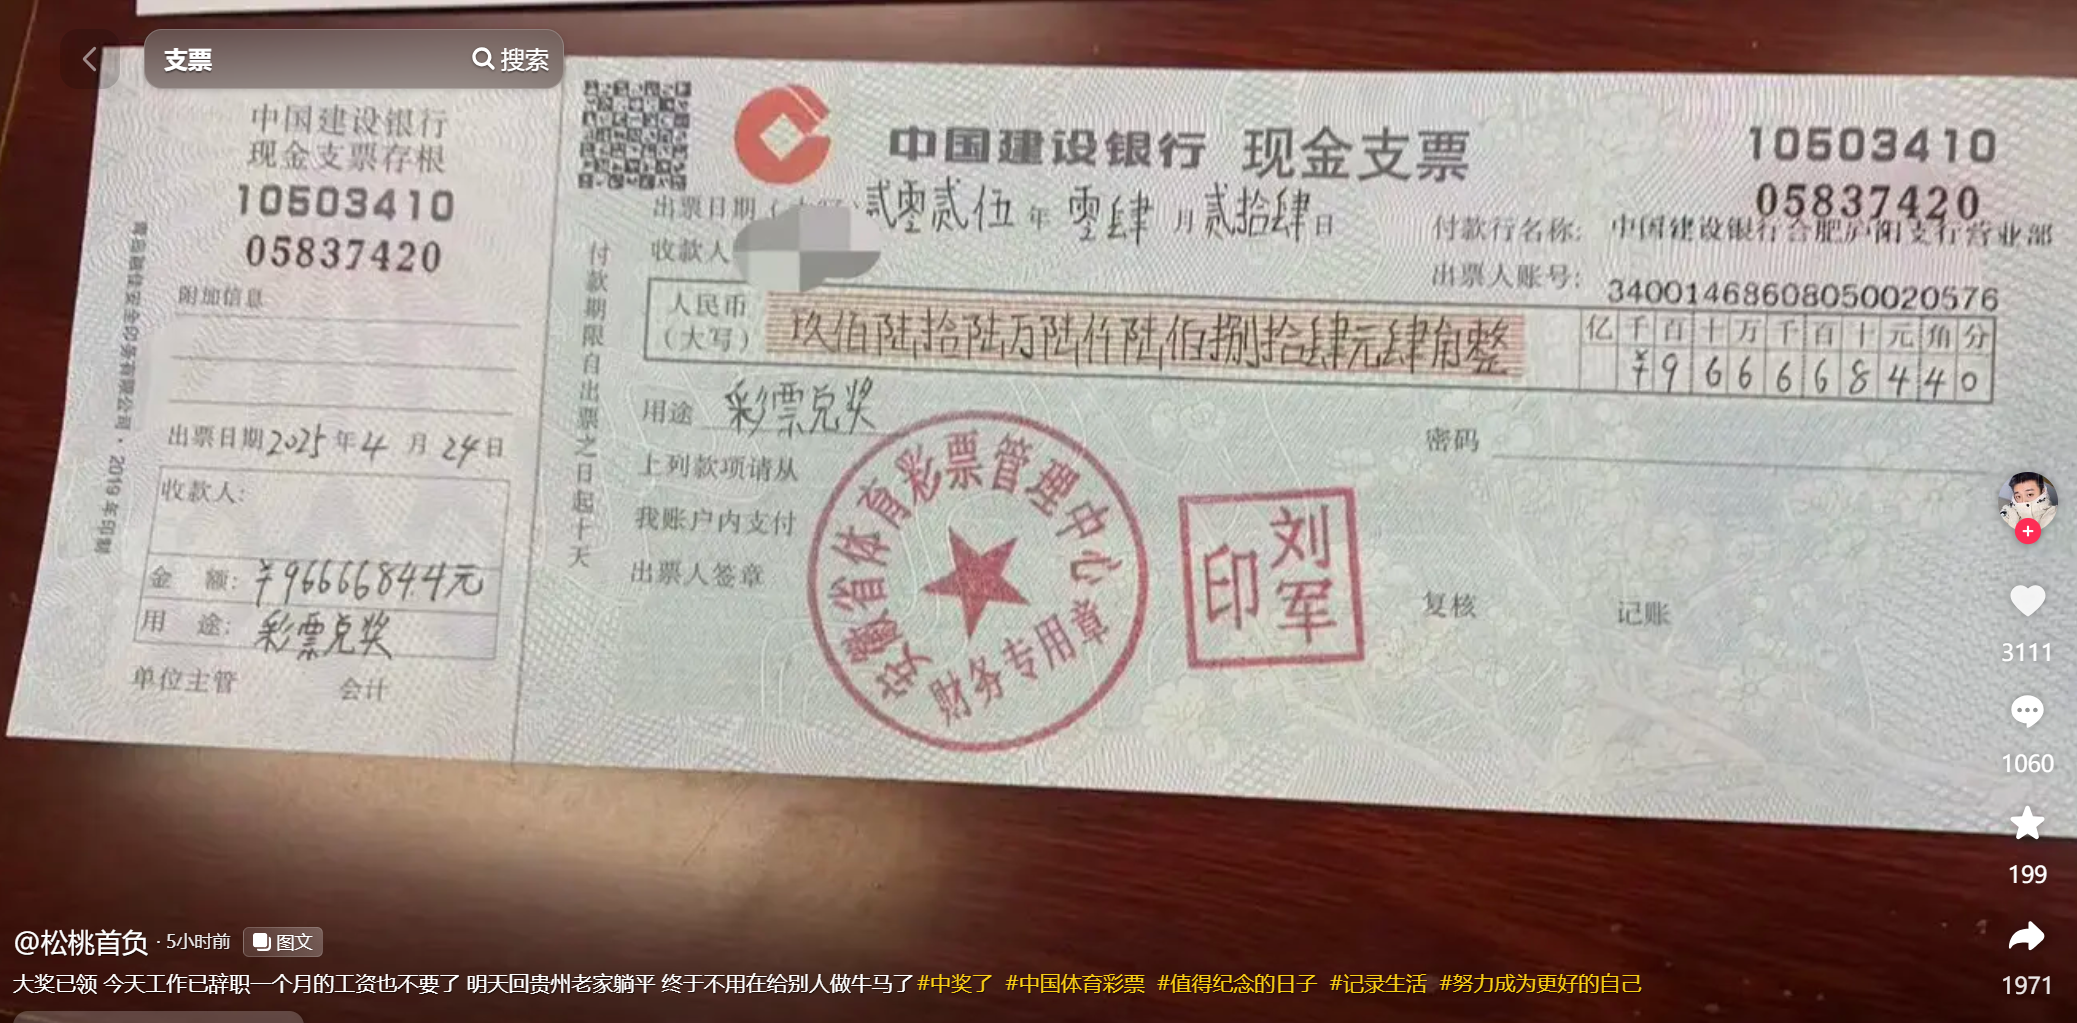 支票
搜索
中国建设银行
现金支票存根
10503410
05837420
附加信息
出票日期2025年4月24日
收款人:
金 额: ¥9666684.4元
用 途: 彩票兑奖
单位主管 会计
付款期限自出票之日起十天
中国建设银行 现金支票
10503410
05837420
出票日期 贰零贰伍年 零肆月 贰拾肆日
收款人
付款行名称: 中国建设银行合肥庐阳支行营业部
出票人账号: 34001468608050020576
人民币
(大写)
玖佰陆拾陆万陆仟陆佰捌拾肆元肆角整
亿千百十万千百十元角分
¥966668440
用途 彩票兑奖
密码
上列款项请从
我账户内支付
出票人签章
安徽省体育彩票管理中心
财务专用章
刘军印
复核
记账
3111
1060
199
1971
@松桃首负 · 5小时前 图文
大奖已领 今天工作已辞职一个月的工资也不要了 明天回贵州老家躺平 终于不用在给别人做牛马了#中奖了 #中国体育彩票 #值得纪念的日子 #记录生活 #努力成为更好的自己